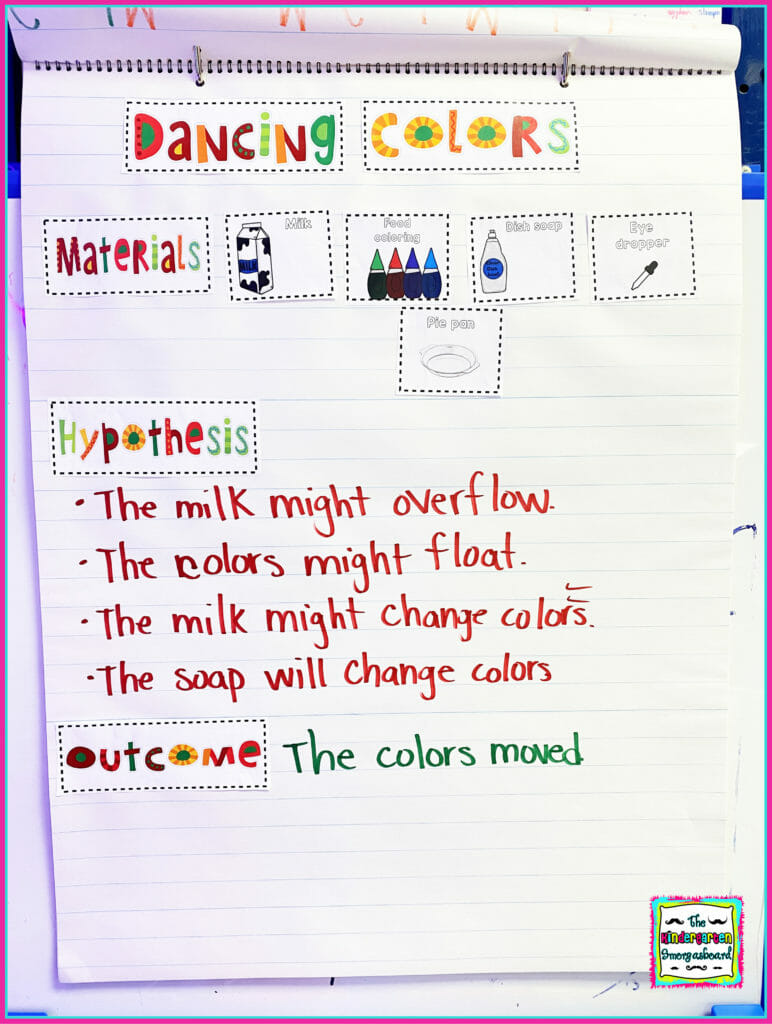 Dancing Colors
Materials
Milk
MILK
Food
coloring
Dish soap
Eye
dropper
Pie pan
Hypothesis
· The milk might overflow.
· The colors might float.
· The milk might change colors.
· The soap will change colors
Outcome The colors moved.
The
Kindergarten
Smorgasboard